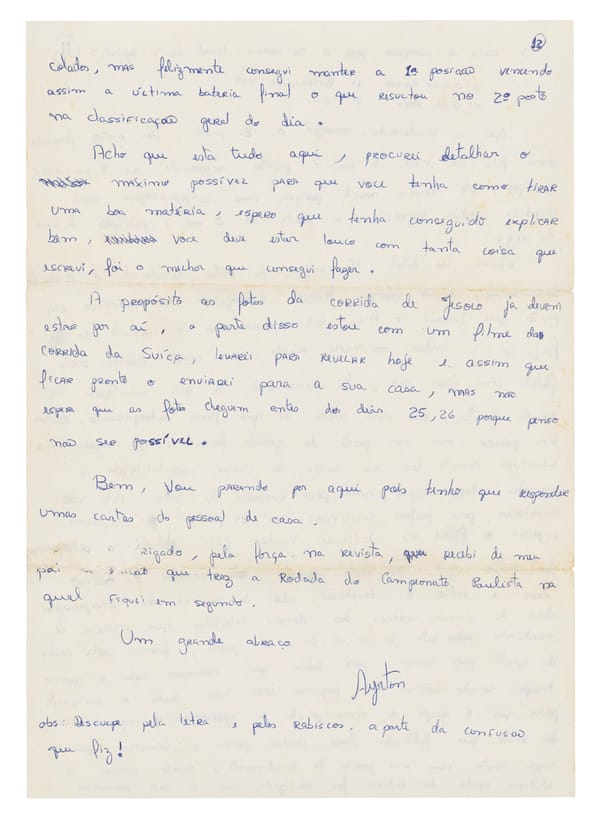 12
colados, mas felizmente consegui manter a 1ª posição vencendo
assim a última bateria final o que resultou no 2º posto
na classificação geral do dia.
Acho que está tudo aqui, procurei detalhar o
máximo possível para que voce tenha como tirar
uma boa matéria, espero que tenha conseguido explicar
bem, voce deve estar louco com tanta coisa que
escrevi, foi o melhor que consegui fazer.
A propósito as fotos da corrida de Jesolo já devem
estar por aí, a parte disso estou com um filme da
corrida da Suiça, levarei para revelar hoje e assim que
ficar pronto o enviarei para a sua casa, mas nao
espera que as fotos cheguem antes dos dias 25,26 porque penso
nao ser possível.
Bem, vou parando por aqui pois tenho que responder
umas cartas do pessoal de casa.
rigado, pela força na revista, recebi de meu
pai que traz a Rodada do Campeonato Paulista na
qual fiquei em segundo.
Um grande abraço
Ayrton
obs: Desculpe pela letra e pelos rabiscos. a parte da confusao
que fiz!